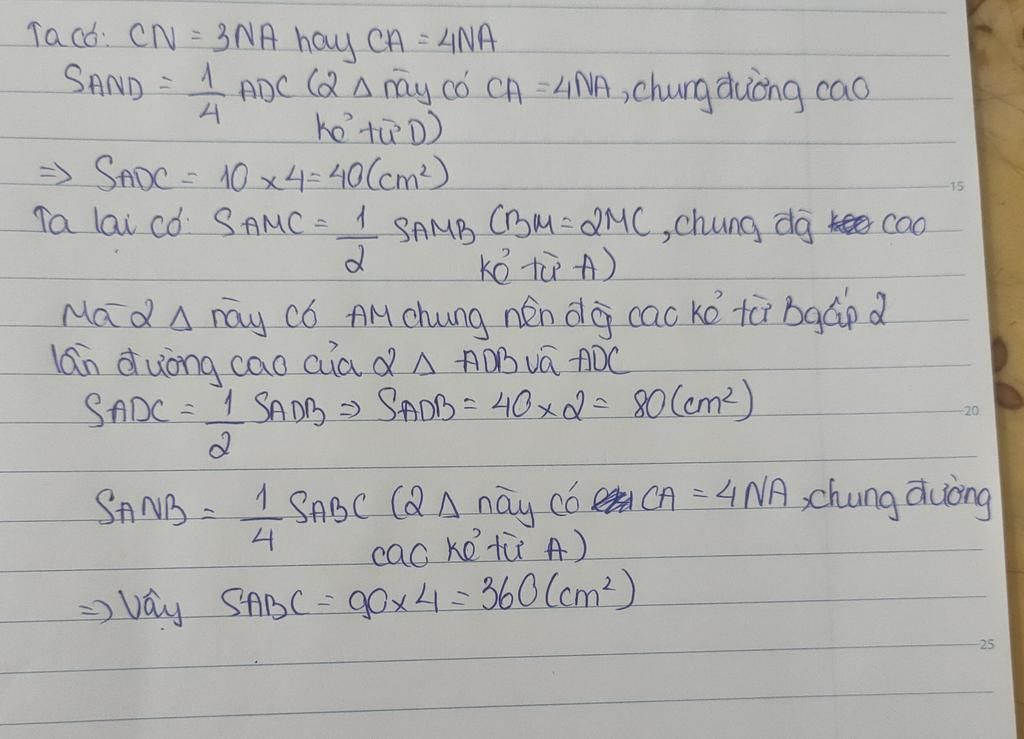 Ta có: CN = 3NA hay CA = 4NA
SAND = 1/4 ADC (2 Δ này có CA = 4NA, chung đường cao
kẻ từ D)
=> SADC = 10 x 4 = 40 (cm²)
15
Ta lại có: SAMC = 1/2 SAMB (BM = 2MC, chung đg cao
kẻ từ A)
Mà 2 Δ này có AM chung nên đg cao kẻ từ B gấp 2
lần đường cao của 2 Δ ADB và ADC
SADC = 1/2 SADB => SADB = 40 x 2 = 80 (cm²)
20
SANB = 1/4 SABC (2 Δ này có CA = 4NA, chung đường
cao kẻ từ A)
=> Vậy SABC = 90 x 4 = 360 (cm²)
25